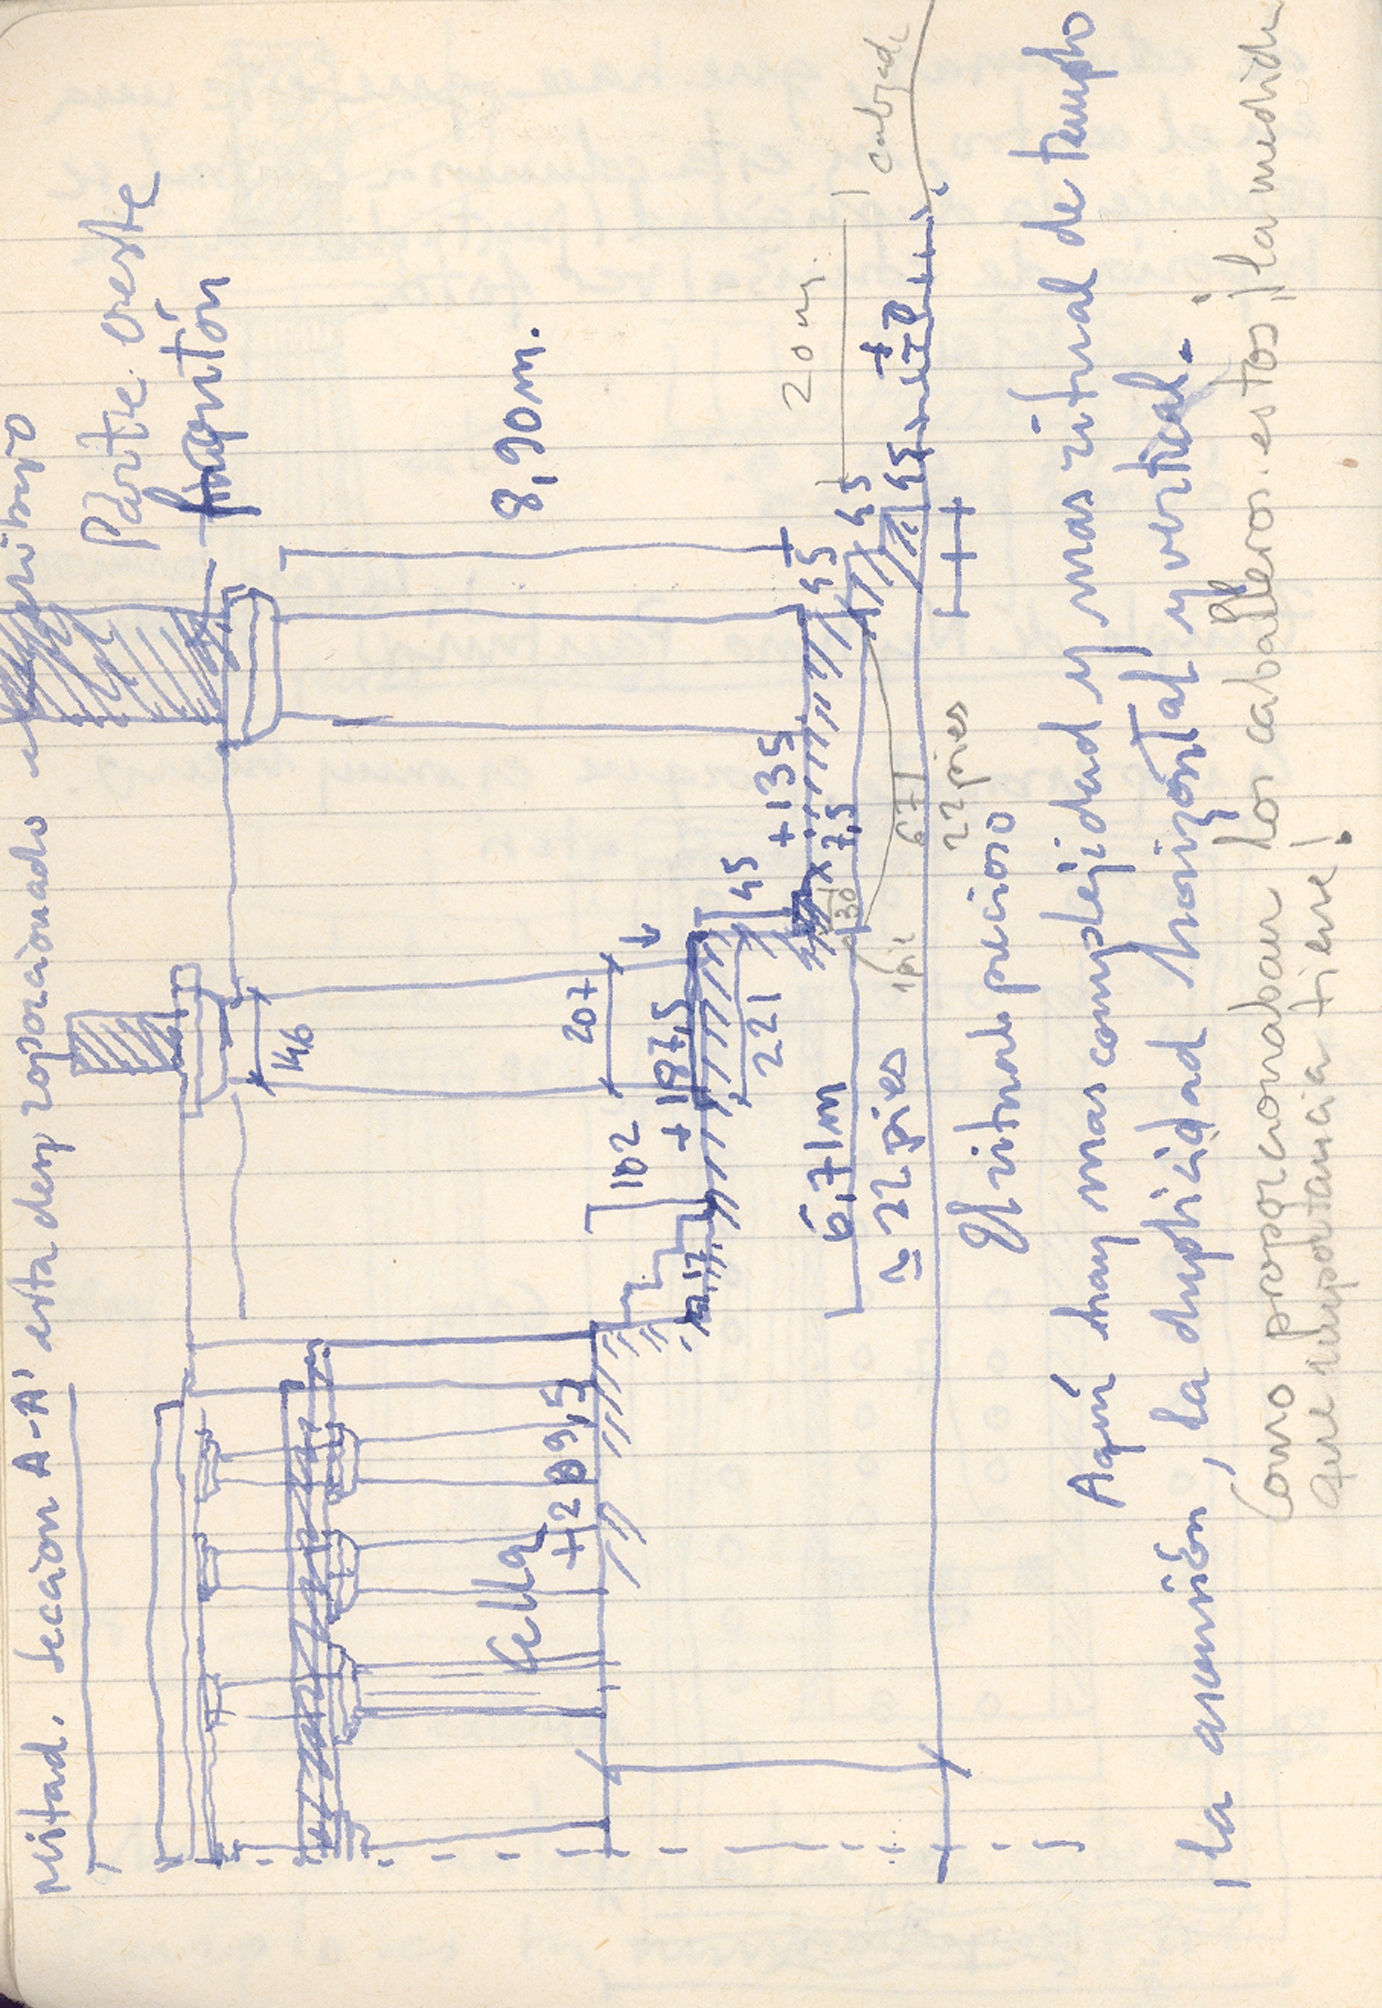 Mitad. Sección A-A' esta desproporcionado
Parte oeste
frontón
8,90 m.
146
207
102
+197,5
45
221
+135
7,5
45
45
45
±0
20 m.
17
Cella
+289,5
6,71 m
≃ 22 pies
30
1 pie
671
22 pies
El ritual precioso
Aquí hay mas complejidad y mas ritual de templo
, la ascensión, la duplicidad horizontal y vertical.
Como proporcionaban los caballeros estos ¡la medida
que importancia tiene!